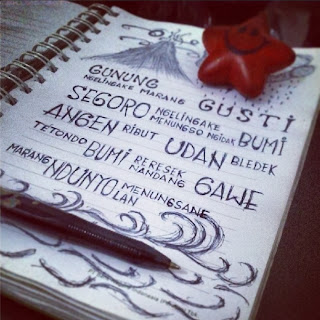 GUNUNG
NGELINGAKE MARANG GUSTI
SEGORO NGELINGAKE
MENUNGSO NGIDAK BUMI
ANGEN RIBUT UDAN BLEDEK
TETONDO BUMI RERESEK
NANDANG GAWE
MARANG NDUNYO LAN MENUNGSANE